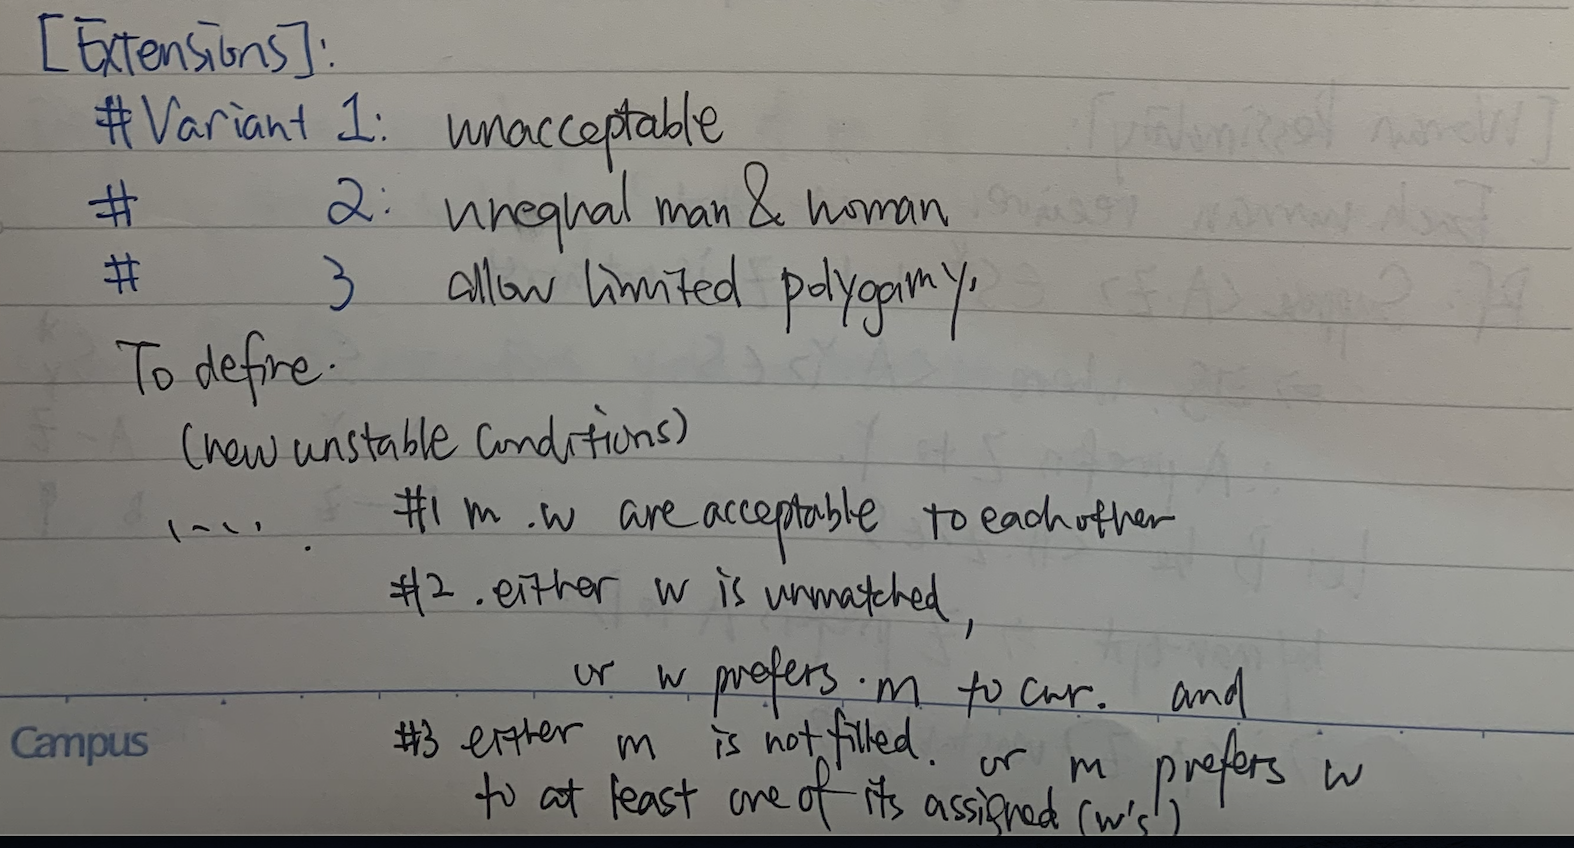 [Extensions]:
#Variant 1: unacceptable
# 2: unequal man & woman
# 3 allow limited polygamy.
To define.
(new unstable conditions)
#1 m .w are acceptable to each other
#2 . either w is unmatched,
or w prefers . m to cur. and
Campus
#3 either m is not filled. or m prefers w
to at least one of its assigned (w's)